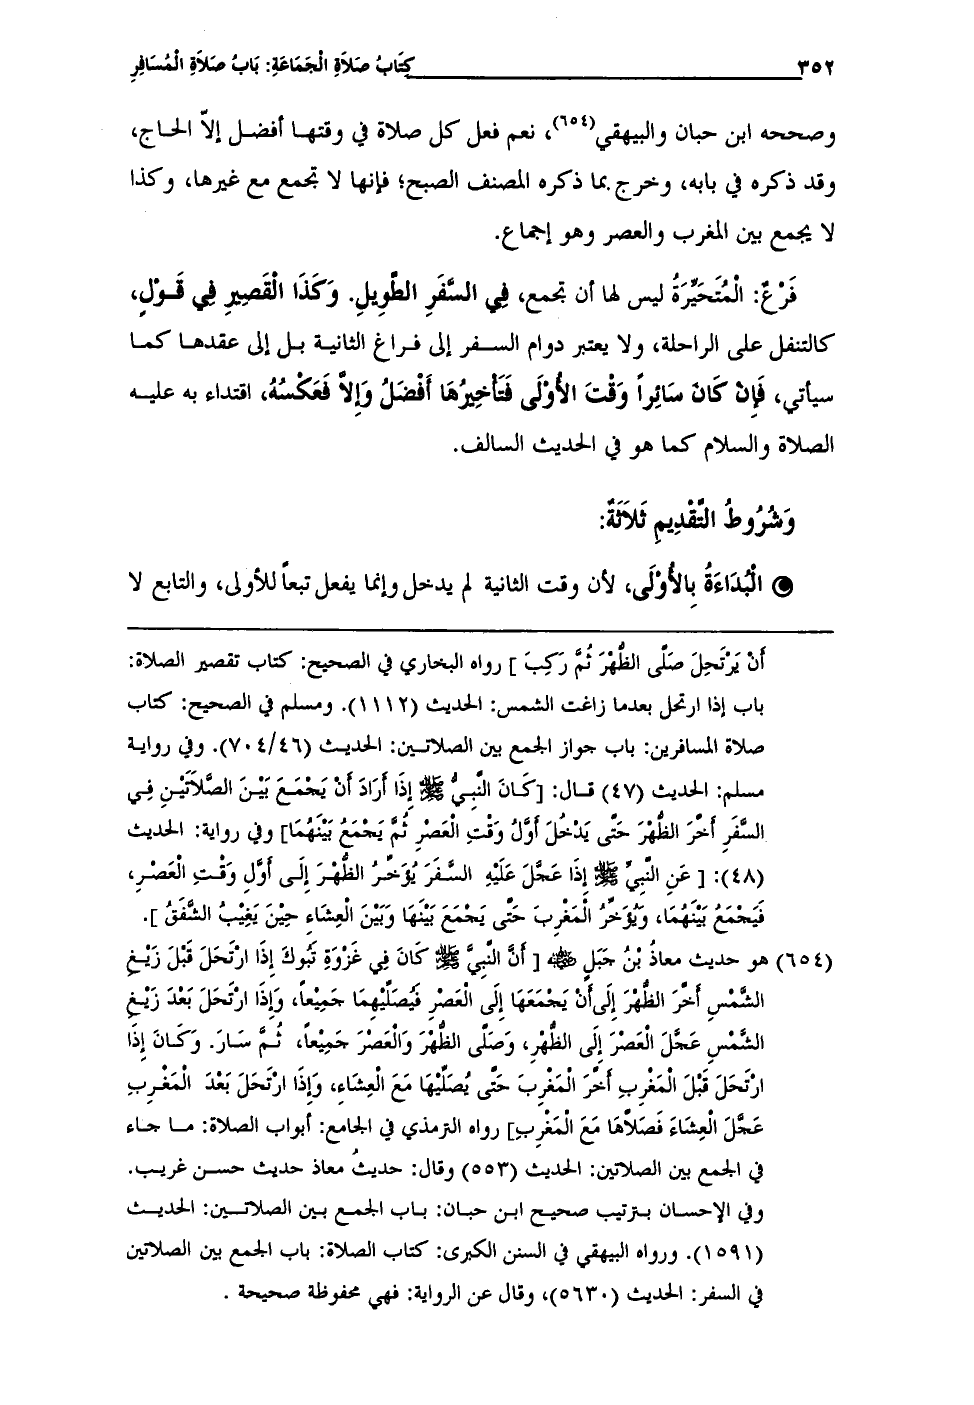 ٣٥٢ كِتَابُ صَلاَةِ الْجَمَاعَةِ: بَابُ صَلاَةِ الْمُسَافِرِ
وصححه ابن حبان والبيهقي(٦٥٤)، نعم فعل كل صلاة في وقتها أفضل إلاّ الحاج،
وقد ذكره في بابه، وخرج بما ذكره المصنف الصبح؛ فإنها لا تجمع مع غيرها، وكذا
لا يجمع بين المغرب والعصر وهو إجماع.
فَرْعٌ: الْمُتَحَيِّرَةُ ليس لها أن تجمع، فِي السَّفَرِ الطَّوِيلِ. وَكَذَا الْقَصِيرِ فِي قَوْلٍ،
كالتنفل على الراحلة، ولا يعتبر دوام السفر إلى فراغ الثانية بل إلى عقدها كما
سيأتي، فَإِنْ كَانَ سَائِراً وَقْتَ الأُوْلَى فَتَأْخِيرُهَا أَفْضَلُ وَإِلاَّ فَعَكْسُهُ، اقتداء به عليه
الصلاة والسلام كما هو في الحديث السالف.
وَشُرُوطُ التَّقْدِيمِ ثَلاَثَةٌ:
الْبُدَاءَةُ بِالأُوْلَى، لأن وقت الثانية لم يدخل وإنما يفعل تبعاً للأولى، والتابع لا
أَنْ يَرْتَحِلَ صَلَّى الظُّهْرَ ثُمَّ رَكِبَ ] رواه البخاري في الصحيح: كتاب تقصير الصلاة:
باب إذا ارتحل بعدما زاغت الشمس: الحديث (١١١٢). ومسلم في الصحيح: كتاب
صلاة المسافرين: باب جواز الجمع بين الصلاتين: الحديث (٧٠٤/٤٦). وفي رواية
مسلم: الحديث (٤٧) قال: [كَانَ النَّبِيُّ ﷺ إِذَا أَرَادَ أَنْ يَجْمَعَ بَيْنَ الصَّلاَتَيْنِ فِي
السَّفَرِ أَخَّرَ الظُّهْرَ حَتَّى يَدْخُلَ أَوَّلُ وَقْتِ الْعَصْرِ ثُمَّ يَجْمَعُ بَيْنَهُمَا] وفي رواية: الحديث
(٤٨): [ عَنِ النَّبِيِّ ﷺ إِذَا عَجَّلَ عَلَيْهِ السَّفَرَ يُؤَخِّرُ الظُّهْرَ إِلَى أَوَّلِ وَقْتِ الْعَصْرِ،
فَيَجْمَعُ بَيْنَهُمَا، وَيُؤَخِّرُ الْمَغْرِبَ حَتَّى يَجْمَعَ بَيْنَهَا وَبَيْنَ الْعِشَاءِ حِيْنَ يَغِيْبُ الشَّفَقُ ].
(٦٥٤) هو حديث معاذُ بْنُ جَبَلٍ ﷺ [ أَنَّ النَّبِيَّ ﷺ كَانَ فِي غَزْوَةِ تَبُوكَ إِذَا ارْتَحَلَ قَبْلَ زَيْغِ
الشَّمْسِ أَخَّرَ الظُّهْرَ إِلَى أَنْ يَجْمَعَهَا إِلَى الْعَصْرِ فَيُصَلِّيهِمَا جَمِيْعاً، وَإِذَا ارْتَحَلَ بَعْدَ زَيْغِ
الشَّمْسِ عَجَّلَ الْعَصْرَ إِلَى الظُّهْرِ، وَصَلَّى الظُّهْرَ وَالْعَصْرَ جَمِيْعاً، ثُمَّ سَارَ. وَكَانَ إِذَا
ارْتَحَلَ قَبْلَ الْمَغْرِبِ أَخَّرَ الْمَغْرِبَ حَتَّى يُصَلِّيَهَا مَعَ الْعِشَاءِ، وَإِذَا ارْتَحَلَ بَعْدَ الْمَغْرِبِ
عَجَّلَ الْعِشَاءَ فَصَلاَّهَا مَعَ الْمَغْرِبِ] رواه الترمذي في الجامع: أبواب الصلاة: ما جاء
في الجمع بين الصلاتين: الحديث (٥٥٣) وقال: حديثُ معاذ حديث حسن غريب.
وفي الإحسان بترتيب صحيح ابن حبان: باب الجمع بين الصلاتين: الحديث
(١٥٩١). ورواه البيهقي في السنن الكبرى: كتاب الصلاة: باب الجمع بين الصلاتين
في السفر: الحديث (٥٦٣٠)، وقال عن الرواية: فهي محفوظة صحيحة .